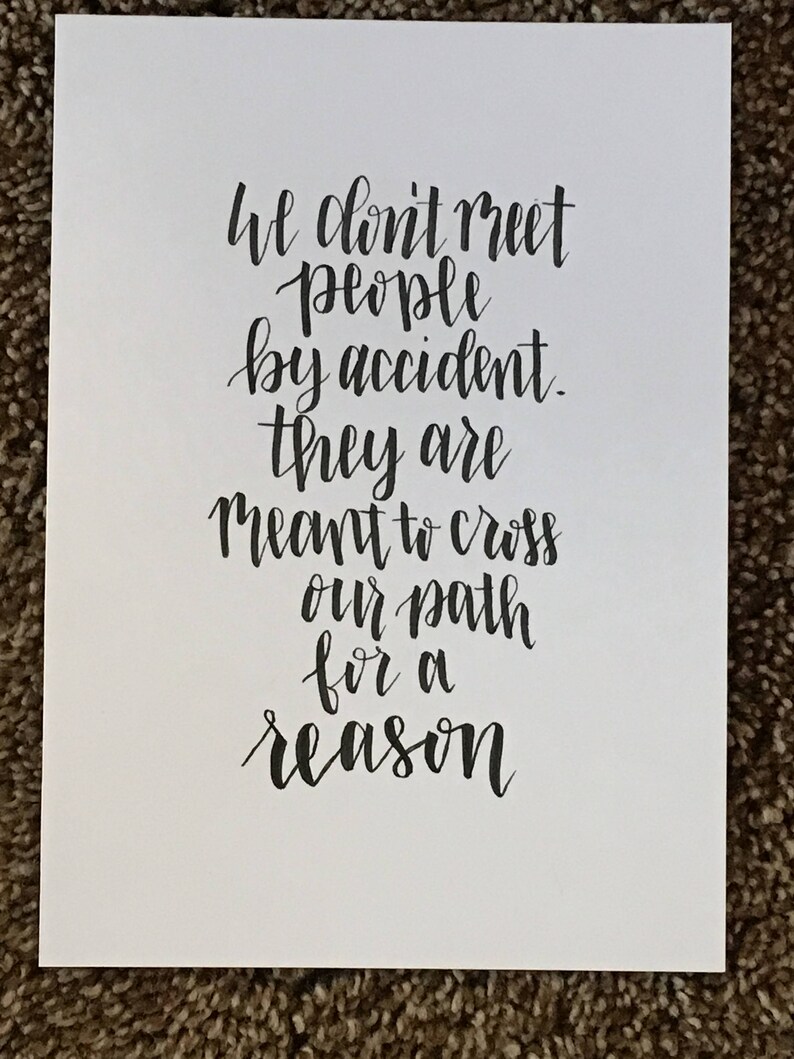 We don't meet
people
by accident.
they are
meant to cross
our path
for a
reason